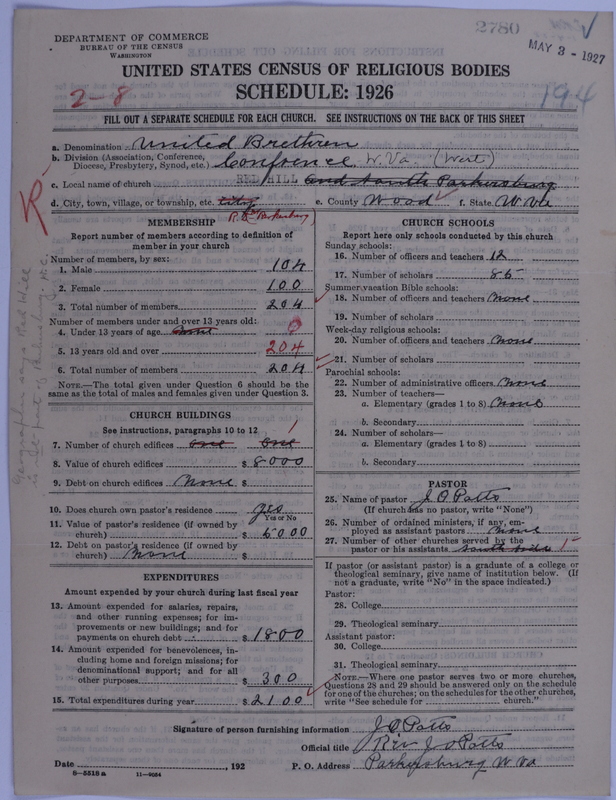 2780
MAY 3 - 1927
194
DEPARTMENT OF COMMERCE
BUREAU OF THE CENSUS
WASHINGTON
UNITED STATES CENSUS OF RELIGIOUS BODIES
SCHEDULE: 1926
2-8
FILL OUT A SEPARATE SCHEDULE FOR EACH CHURCH. SEE INSTRUCTIONS ON THE BACK OF THIS SHEET
a. Denomination United Brethren
b. Division (Association, Conference, Diocese, Presbytery, Synod, etc.) Confrence W. Va. (West)
c. Local name of church RED HILL and South Parkersburg
d. City, town, village, or township, etc. City e. County Wood f. State W Va
MEMBERSHIP
Report number of members according to definition of
member in your church
Number of members, by sex:
1. Male 104
2. Female 100
3. Total number of members 204
Number of members under and over 13 years old:
4. Under 13 years of age 0
5. 13 years old and over 204
6. Total number of members 204
NOTE.—The total given under Question 6 should be the
same as the total of males and females given under Question 3.
CHURCH BUILDINGS
See instructions, paragraphs 10 to 12
7. Number of church edifices One One 1
8. Value of church edifices $ 8000
9. Debt on church edifices None $
10. Does church own pastor's residence yes
Yes or No
11. Value of pastor's residence (if owned by
church) $ 6000
12. Debt on pastor's residence (if owned by
church) None $
EXPENDITURES
Amount expended by your church during last fiscal year
13. Amount expended for salaries, repairs,
and other running expenses; for im-
provements or new buildings; and for
payments on church debt $ 1800
14. Amount expended for benevolences, in-
cluding home and foreign missions; for
denominational support; and for all
other purposes $ 300
15. Total expenditures during year $ 2100
CHURCH SCHOOLS
Report here only schools conducted by this church
Sunday schools:
16. Number of officers and teachers 12
17. Number of scholars 85
Summer vacation Bible schools:
18. Number of officers and teachers None
19. Number of scholars
Week-day religious schools:
20. Number of officers and teachers None
21. Number of scholars
Parochial schools:
22. Number of administrative officers None
23. Number of teachers—
a. Elementary (grades 1 to 8) None
b. Secondary
24. Number of scholars—
a. Elementary (grades 1 to 8)
b. Secondary
PASTOR
25. Name of pastor J. O. Potts
(If church has no pastor, write "None")
26. Number of ordained ministers, if any, em-
ployed as assistant pastors None
27. Number of other churches served by the
pastor or his assistants South side 1
If pastor (or assistant pastor) is a graduate of a college or
theological seminary, give name of institution below. (If
not a graduate, write "No" in the space indicated.)
Pastor:
28. College
29. Theological seminary
Assistant pastor:
30. College
31. Theological seminary
NOTE.—Where one pastor serves two or more churches,
Questions 28 and 29 should be answered only on the schedule
for one of the churches; on the schedules for the other churches,
write "See schedule for church."
Signature of person furnishing information J O Potts
Official title Rev J O Potts
Date , 192 P. O. Address Parkersburg W Va
8-5518 a 11-9084